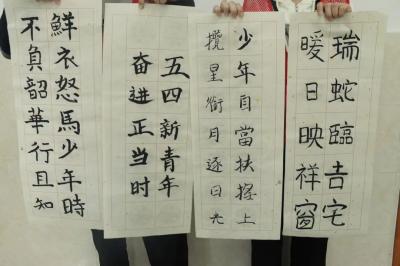 瑞蛇臨吉宅
暖日映祥窗
少年自當扶搖上
攬星銜月逐日光
五四新青年
奋进正当时
鮮衣怒馬少年時
不負韶華行且知